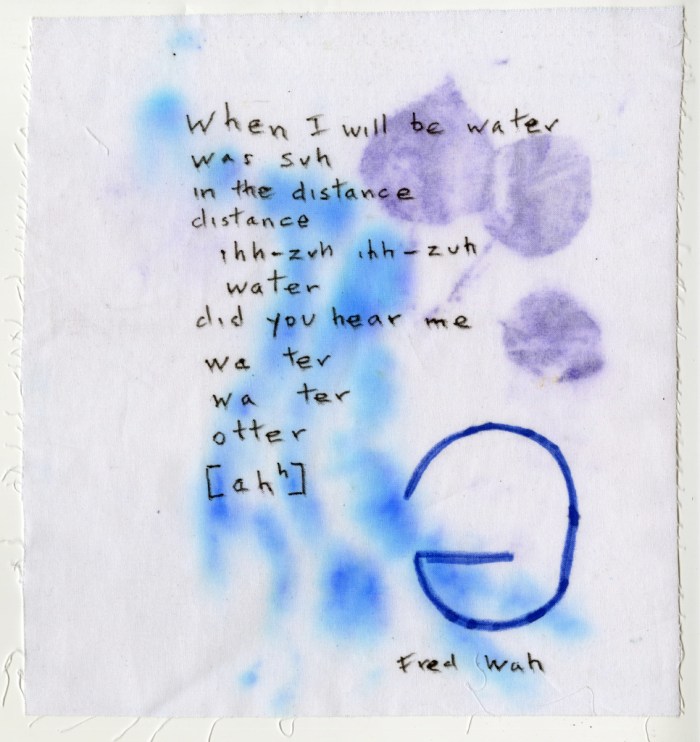 When I will be water
was suh
in the distance
distance
ihh-zuh ihh-zuh
water
did you hear me
wa ter
wa ter
otter
[ahʰ]
ə
Fred Wah